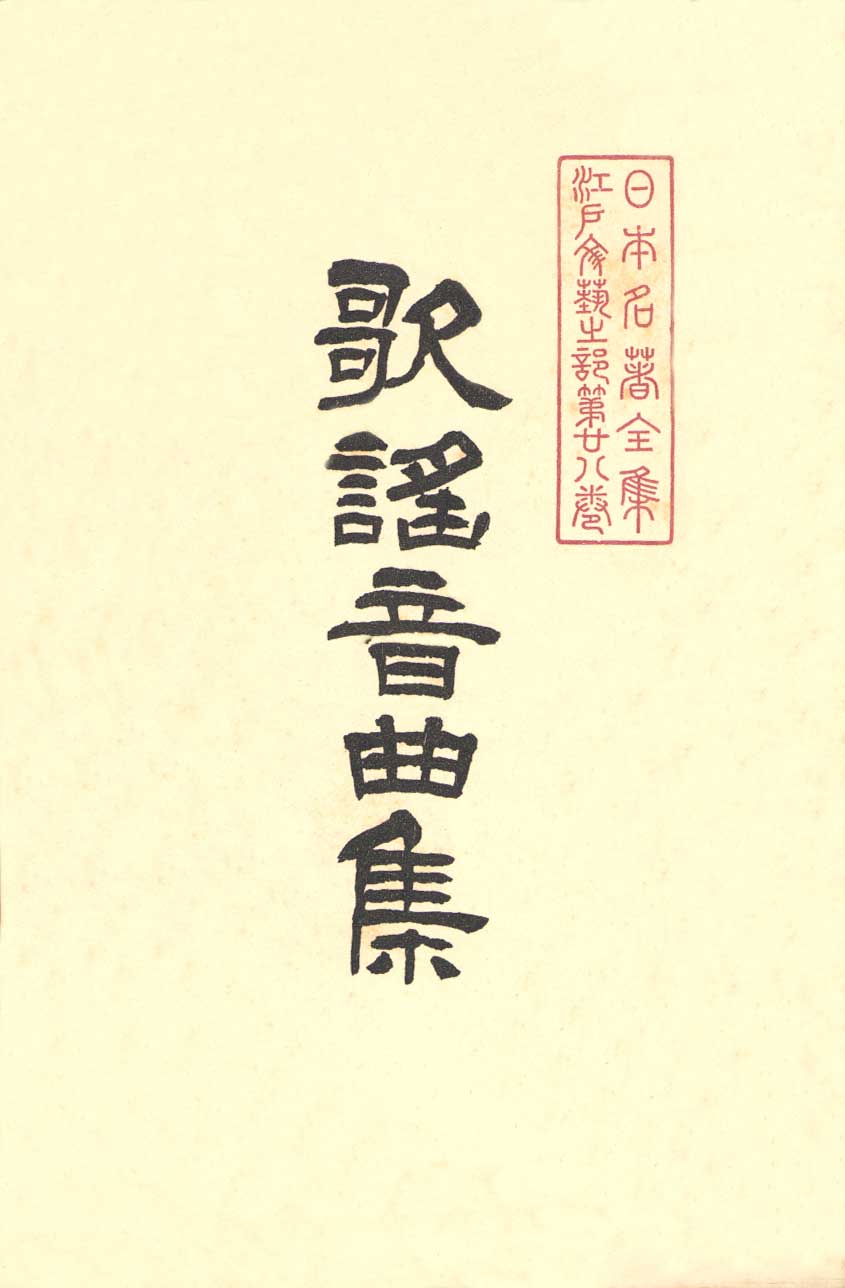 日本名著全集
江戸文藝之部第廿八卷
歌謠音曲集